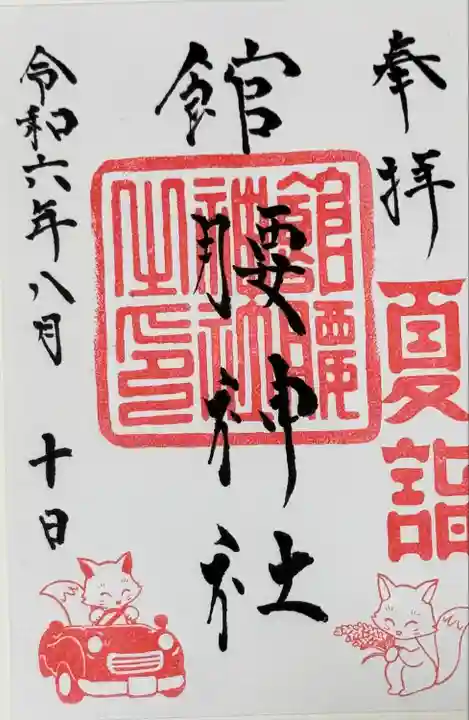 奉拝
夏詣
館腰神社
館腰
神社
之印
令和六年八月 十日